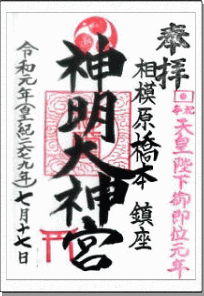 奉拝
奉祝
天皇陛下御即位元年
相模原橋本鎮座
神明大神宮
令和元年(皇紀二六七九年)七月十七日